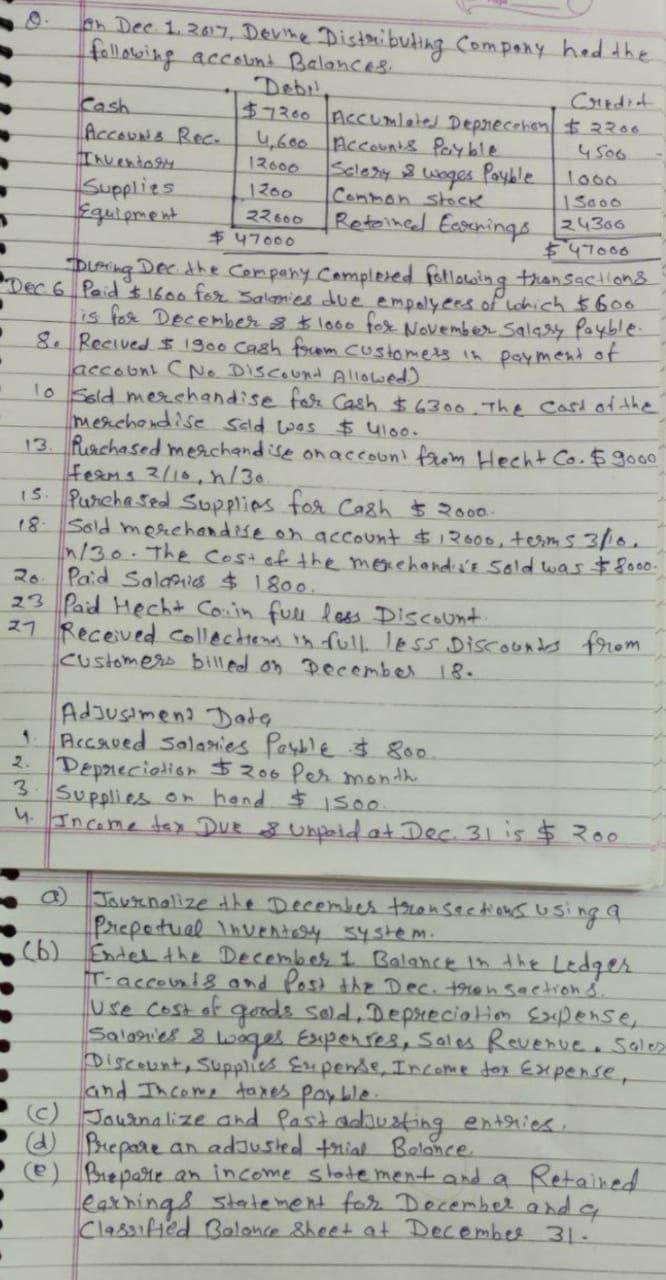 Q. on Dec 1, 2017, Devine Distributing Company had the
following account Balances.
Debit Credit
Cash $7200 Accumlated Deprecetion $2200
Accounts Rec. 4,600 Accounts Payble 4500
Inventory 12000 Salary & wages Payble 1000
Supplies 1200 Common stock 15000
Equipment 22000 Retained Earnings 24300
$47000 $47000
During Dec. the Company Completed following transactions
Dec 6 Paid $1600 for salaries due empolyees of which $600
is for December & $1000 for November Salary Payble.
8. Recived $1900 cash from customers in payment of
account (No Discount Allowed)
10 Sold merchandise for Cash $6300. The Cost of the
merchandise sold was $4100.
13. Purchased merchandise on account from Hecht Co. $9000
terms 2/10, n/30
15. Purchased Supplies for Cash $2000.
18. Sold merchandise on account $12000, terms 3/10,
n/30. The Cost of the merchandise sold was $8000.
20. Paid Salaries $1800.
23 Paid Hecht Co. in full less Discount.
27 Received collections in full, less Discounts from
customers billed on December 18.
Adjustment Data
1. Accrued Salaries Payble $800.
2. Depreciation $200 Per month
3. Supplies on hand $1500.
4. Income tax Due & Unpaid at Dec. 31 is $200
a) Journalize the December transactions using a
Prepetual Inventory system.
(b) Enter the December 1 Balance in the Ledger
T-accounts and Post the Dec. transactions.
Use cost of goods sold, Depreciation Expense,
Salaries & wages Expenses, Sales Revenue, Sales
Discount, Supplies Expense, Income tax Expense,
and Income taxes payble.
(c) Journalize and Post adjusting entries.
(d) Prepare an adjusted trial Balance.
(e) Prepare an income statement and a Retained
earnings statement for December and a
Classified Balance Sheet at December 31.